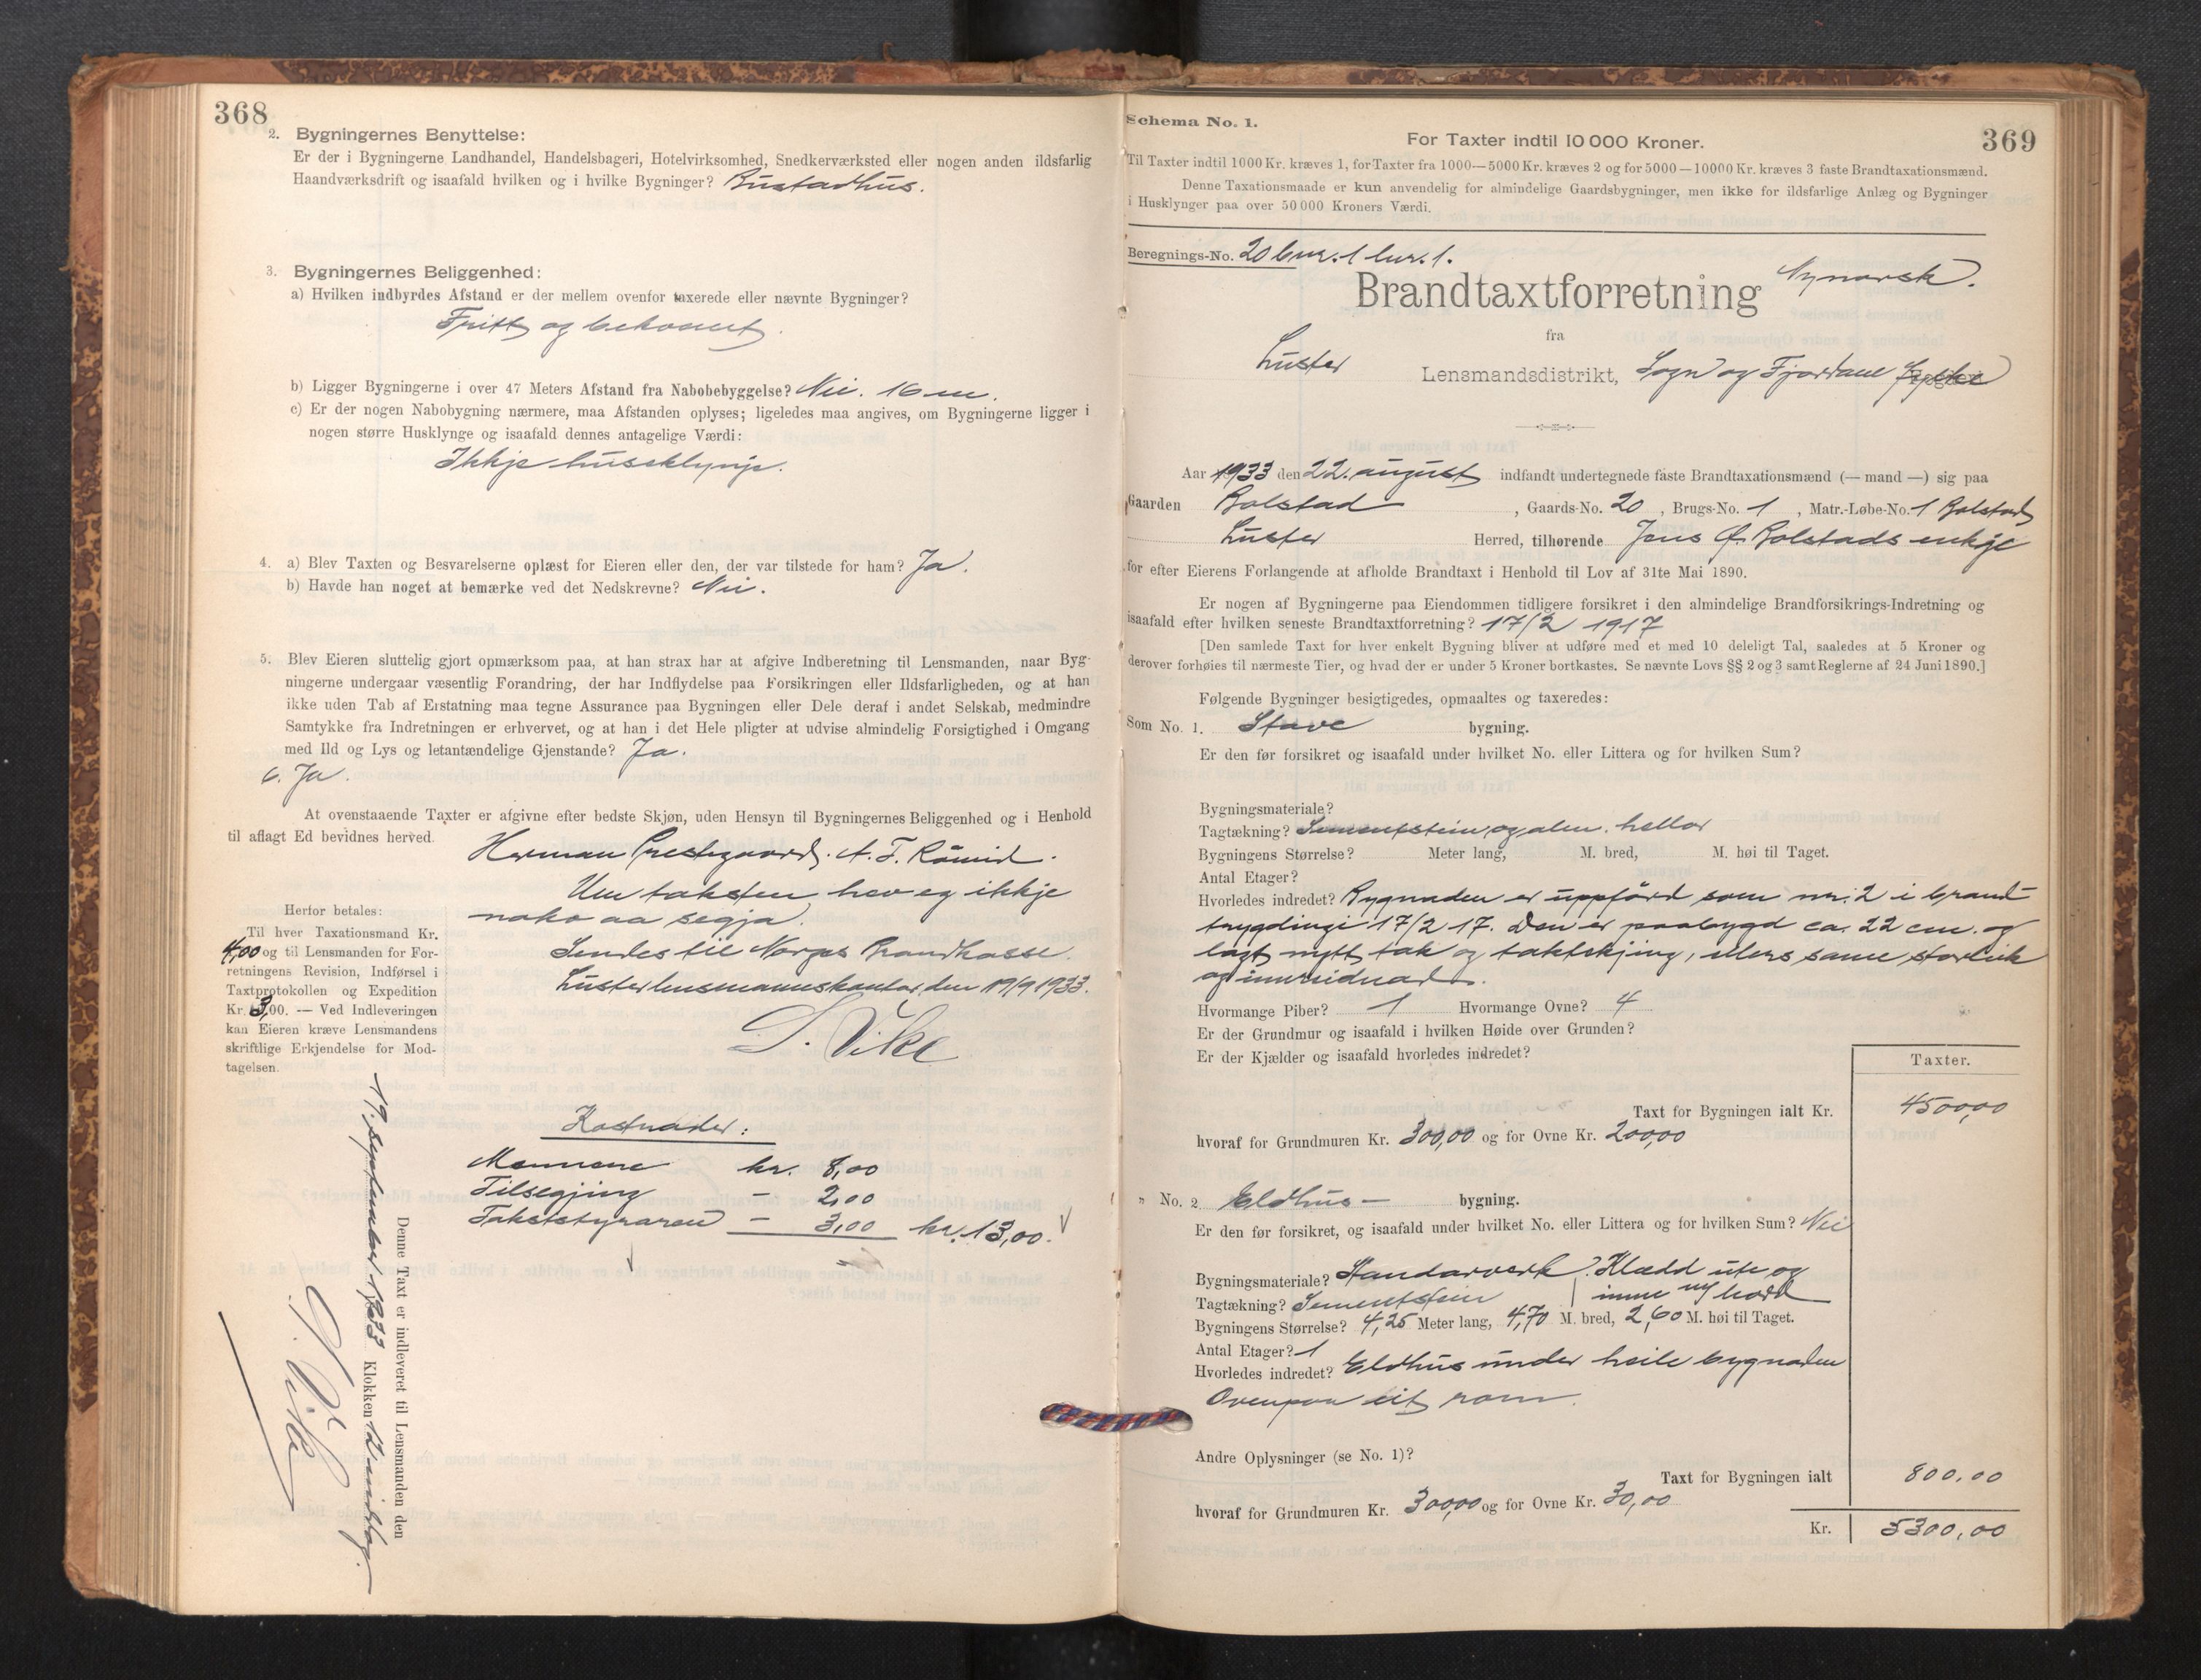 368
2. Bygningernes Benyttelse:
Er der i Bygningerne Landhandel, Handelsbageri, Hotelvirksomhed, Snedkerværksted eller nogen anden ildsfarlig
Haandværksdrift og isaafald hvilken og i hvilke Bygninger? Bustadhus.
3. Bygningernes Beliggenhed:
a) Hvilken indbyrdes Afstand er der mellem ovenfor taxerede eller nævnte Bygninger?
Fritt og
b) Ligger Bygningerne i over 47 Meters Afstand fra Nabobebyggelse? Nei. 16 m.
c) Er der nogen Nabobygning nærmere, maa Afstanden oplyses; ligeledes maa angives, om Bygningerne ligger i
nogen større Husklynge og isaafald dennes antagelige Værdi:
Ikkje huseklynje.
4. a) Blev Taxten og Besvarelserne oplæst for Eieren eller den, der var tilstede for ham? Ja.
b) Havde han noget at bemærke ved det Nedskrevne? Nei.
5. Blev Eieren sluttelig gjort opmærksom paa, at han strax har at afgive Indberetning til Lensmanden, naar Byg-
ningerne undergaar væsentlig Forandring, der har Indflydelse paa Forsikringen eller Ildsfarligheden, og at han
ikke uden Tab af Erstatning maa tegne Assurance paa Bygningen eller Dele deraf i andet Selskab, medmindre
Samtykke fra Indretningen er erhvervet, og at han i det Hele pligter at udvise almindelig Forsigtighed i Omgang
med Ild og Lys og letantændelige Gjenstande? Ja.
6. Ja.
At ovenstaaende Taxter er afgivne efter bedste Skjøn, uden Hensyn til Bygningernes Beliggenhed og i Henhold
til aflagt Ed bevidnes herved.
Herman Prestegaard. A. T.
Um taksten hev eg ikkje
noko aa segja.
Sendes til Norges Brandkasse.
Luster lensmannskontor, den 19/9 1933.
S. Vike
Herfor betales:
Til hver Taxationsmand Kr.
4,00 og til Lensmanden for For-
retningens Revision, Indførsel i
Taxtprotokollen og Expedition
Kr. 3,00. — Ved Indleveringen
kan Eieren kræve Lensmandens
skriftlige Erkjendelse for Mod-
tagelsen.
Kostnader:
Mennene kr. 8,00
Tilsegjing - 2,00
Takststyraren - 3,00 kr. 13,00.
Denne Taxt er indleveret til Lensmanden den
19. september 1933 Klokken 12 middag.
S. Vike
369
Schema No. 1.
For Taxter indtil 10 000 Kroner.
Til Taxter indtil 1000 Kr. kræves 1, for Taxter fra 1000—5000 Kr. kræves 2 og for 5000—10000 Kr. kræves 3 faste Brandtaxationsmænd.
Denne Taxationsmaade er kun anvendelig for almindelige Gaardsbygninger, men ikke for ildsfarlige Anlæg og Bygninger
i Husklynger paa over 50 000 Kroners Værdi.
Beregnings-No. 20 bnr. 1 lnr. 1.
Brandtaxtforretning Nynorsk.
fra
Luster Lensmandsdistrikt, Sogn og Fjordane Fylke
Aar 1933 den 22. august indfandt undertegnede faste Brandtaxationsmænd (— mand —) sig paa
Gaarden Bolstad, Gaards-No. 20, Brugs-No. 1, Matr.-Løbe-No. 1 Bolstad
Luster Herred, tilhørende Jens Ø. Bolstads enkje
for efter Eierens Forlangende at afholde Brandtaxt i Henhold til Lov af 31te Mai 1890.
Er nogen af Bygningerne paa Eiendommen tidligere forsikret i den almindelige Brandforsikrings-Indretning og
isaafald efter hvilken seneste Brandtaxtforretning? 17/2 1917
[Den samlede Taxt for hver enkelt Bygning bliver at udføre med et med 10 deleligt Tal, saaledes at 5 Kroner og
derover forhøies til nærmeste Tier, og hvad der er under 5 Kroner bortkastes. Se nævnte Lovs §§ 2 og 3 samt Reglerne af 24 Juni 1890.]
Følgende Bygninger besigtigedes, opmaaltes og taxeredes:
Som No. 1. Stove bygning.
Er den før forsikret og isaafald under hvilket No. eller Littera og for hvilken Sum?
Bygningsmateriale?
Tagtækning? Sementstein og alm. hellor
Bygningens Størrelse? Meter lang, M. bred, M. høi til Taget.
Antal Etager?
Hvorledes indredet? Bygnaden er uppførd som nr. 2 i brand-
trygdingi 17/2 17. Den er paabygd ca. 22 cm. og
lagt nytt tak og taktekjing, ellers same storleik
og innreidnad.
Hvormange Piber? 1 Hvormange Ovne? 4
Er der Grundmur og isaafald i hvilken Høide over Grunden?
Er der Kjælder og isaafald hvorledes indredet?
Taxter.
Taxt for Bygningen ialt Kr. 4500,00
hvoraf for Grundmuren Kr. 300,00 og for Ovne Kr. 200,00
" No. 2 Eldhus— bygning.
Er den før forsikret, og isaafald under hvilket No. eller Littera og for hvilken Sum? Nei
Bygningsmateriale? Standarverk. Klædd ute og
Tagtækning? Sementstein inne
Bygningens Størrelse? 4,25 Meter lang, 4,70 M. bred, 2,60 M. høi til Taget.
Antal Etager? 1
Hvorledes indredet? Eldhus under heile bygnaden
Ovenpaa eit rom.
Andre Oplysninger (se No. 1)?
Taxt for Bygningen ialt 800.00
hvoraf for Grundmuren Kr. 300,00 og for Ovne Kr. 30,00
Kr. 5300,00